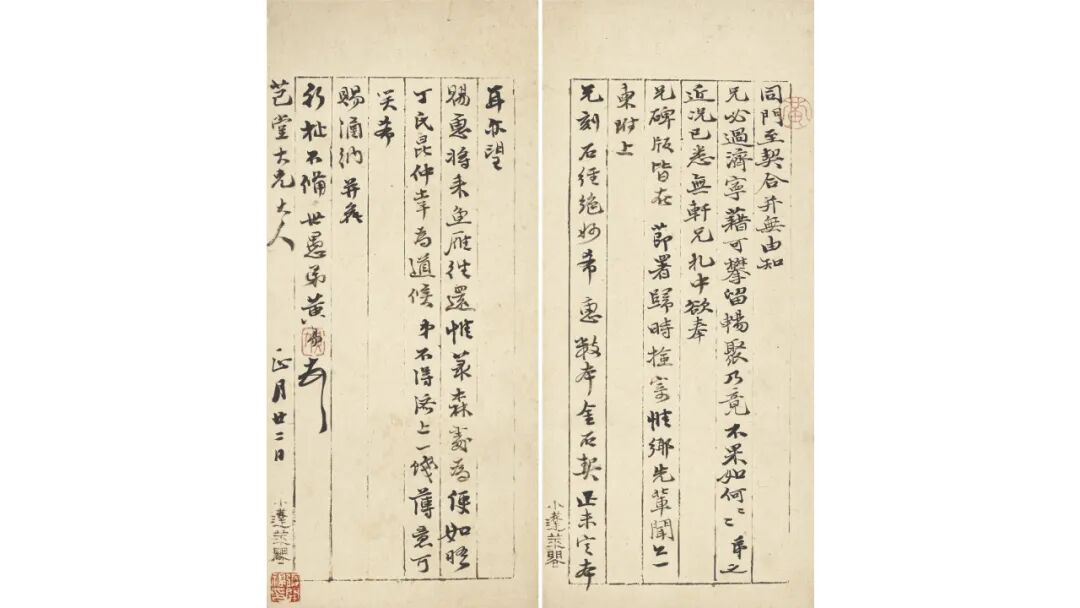 同門至契合并無由知
兄必過濟寧藉可攀留暢聚乃竟不果如何〻〻弟之
近況已悉無軒兄札中欲奉
兄碑版皆在 節署歸時撿寄惟鄉先輩聞上一
東附上
兄刻石經絶妙希惠數本金石契正未定本
小蓬萊閣
耳亦望
賜惠將來魚雁往還惟葉森處為便如晤
丁氏昆仲幸為道候弟不得済上一錢薄意可
笑希
賜酒納并癸
新祉不備世愚弟黃易頓
芑堂大兄大人 正月廿二日
小蓬萊閣